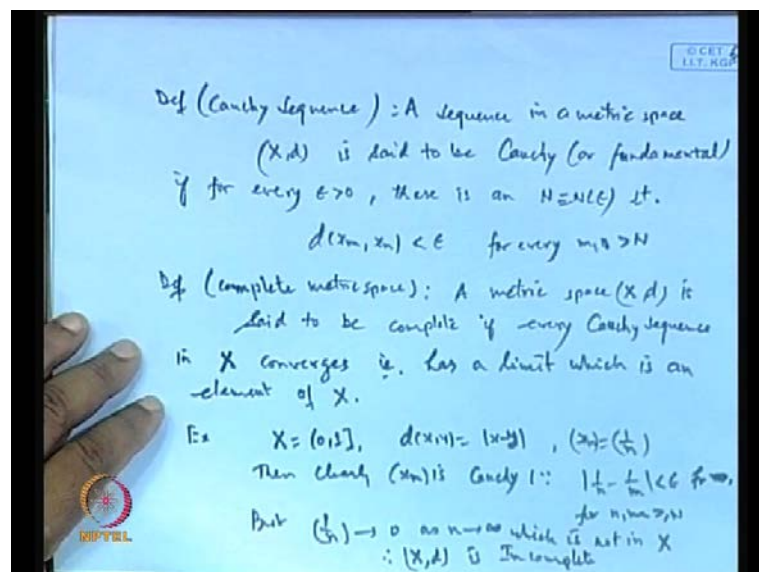 © CET
I.I.T. KGP
Def (Cauchy Sequence) : A sequence in a metric space
(X,d) is said to be Cauchy (or fundamental)
if for every ε>0, there is an N=N(ε) st.
d(xm, xn) < ε for every m,n >N
Def (complete metric space): A metric space (X,d) is
said to be complete if every Cauchy sequence
in X converges ie. has a limit which is an
element of X.
Ex X = (0,1], d(x,y)= |x-y|, (xn)=(1/n)
Then clearly (xn) is Cauchy ∵ |1/n - 1/m|<ε for
for n,m ≥N
But (1/n) → 0 as n→∞ which is not in X
∴ (X,d) is Incomplete
NPTEL